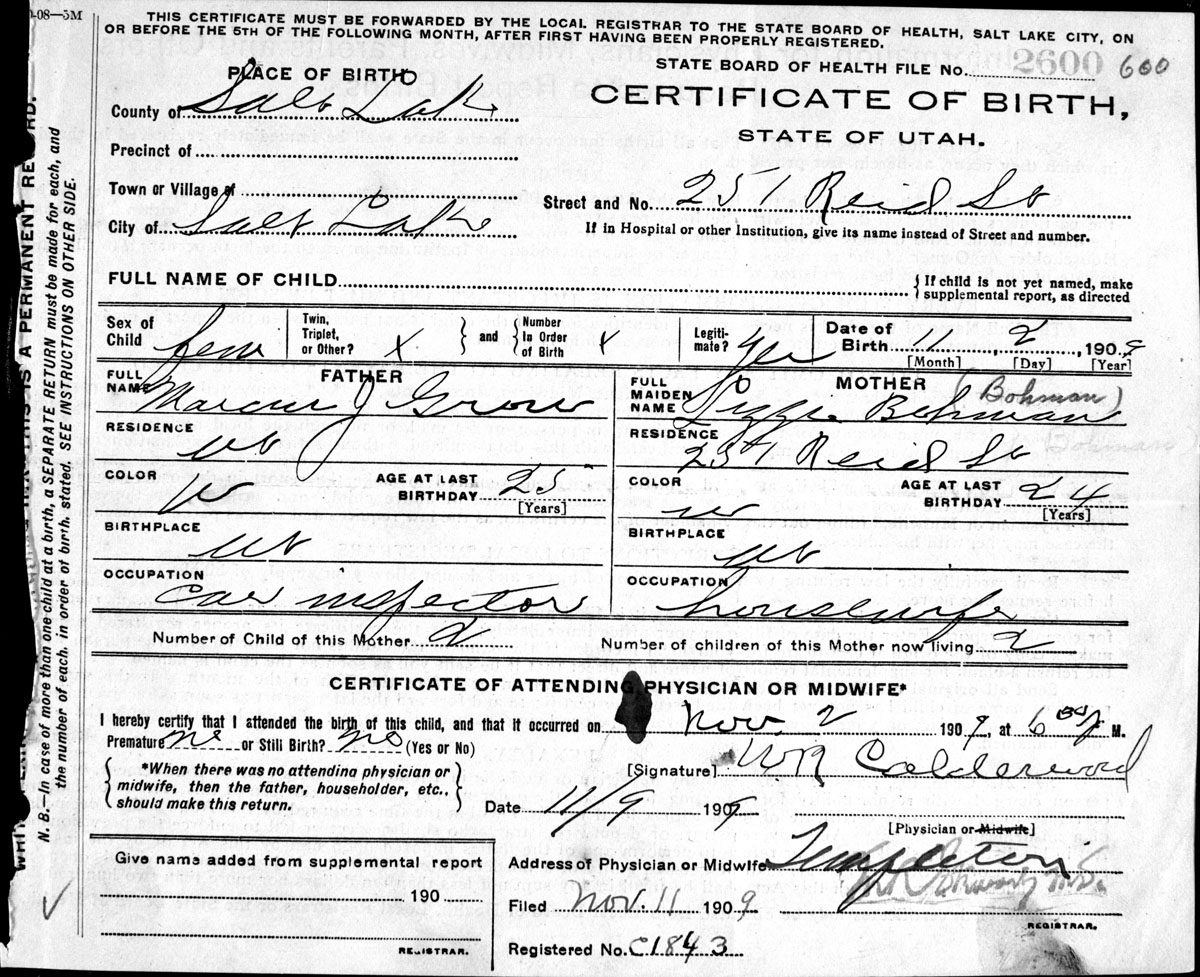 0-08—5M
THIS CERTIFICATE MUST BE FORWARDED BY THE LOCAL REGISTRAR TO THE STATE BOARD OF HEALTH, SALT LAKE CITY, ON
OR BEFORE THE 5TH OF THE FOLLOWING MONTH, AFTER FIRST HAVING BEEN PROPERLY REGISTERED.
STATE BOARD OF HEALTH FILE No. 2600 600
PLACE OF BIRTH
CERTIFICATE OF BIRTH,
STATE OF UTAH.
County of Salt Lake
Precinct of
Town or Village of
Street and No. 251 Reid St
City of Salt Lake
If in Hospital or other Institution, give its name instead of Street and number.
FULL NAME OF CHILD
If child is not yet named, make
supplemental report, as directed
Sex of Child fem Twin, Triplet, or Other? X and Number In Order of Birth X Legiti-mate? yes Date of Birth 11, 2, 1909
[Month] [Day] [Year]
FATHER
FULL NAME Marcus J Grow
RESIDENCE ut
COLOR W AGE AT LAST BIRTHDAY 25
[Years]
BIRTHPLACE ut
OCCUPATION Car inspector
MOTHER (Bohman)
FULL MAIDEN NAME Lizzie Bohman
RESIDENCE 251 Reid St Bohman
COLOR w AGE AT LAST BIRTHDAY 24
[Years]
BIRTHPLACE ut
OCCUPATION housewife
Number of Child of this Mother 2 Number of children of this Mother now living 2
CERTIFICATE OF ATTENDING PHYSICIAN OR MIDWIFE*
I hereby certify that I attended the birth of this child, and that it occurred on Nov. 2 1909, at 6 P M.
Premature no or Still Birth? no (Yes or No)
*When there was no attending physician or
midwife, then the father, householder, etc.,
should make this return.
[Signature] WR Calderwood
Date 11/9 1909
[Physician or Midwife]
Give name added from supplemental report
190
REGISTRAR.
Address of Physician or Midwife Templeton
Filed Nov. 11 1909
REGISTRAR.
Registered No. C1843
N. B.—In case of more than one child at a birth, a SEPARATE RETURN must be made for each, and
the number of each, in order of birth, stated. SEE INSTRUCTIONS ON OTHER SIDE.
IS A PERMANENT RECORD.